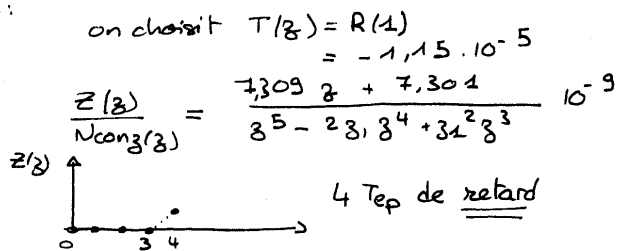 :
on choisit T(z) = R(1)
= - 1,15 . 10^-5
Z(z)/Nconz(z) = (7,309 z + 7,301)/(z^5 - 2z1 z^4 + z1^2 z^3) 10^-9
Z(z)
4 Tep de retard
0 3 4